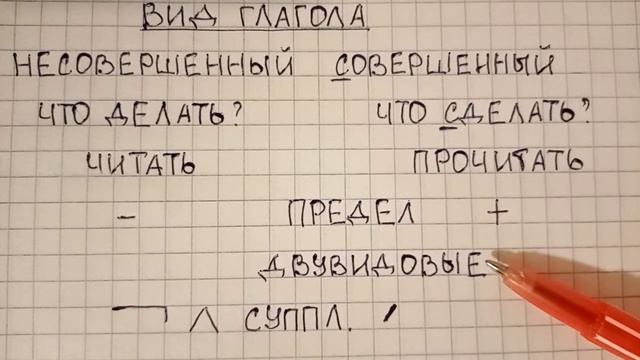 ВИД ГЛАГОЛА
НЕСОВЕРШЕННЫЙ СОВЕРШЕННЫЙ
ЧТО ДЕЛАТЬ? ЧТО СДЕЛАТЬ?
ЧИТАТЬ ПРОЧИТАТЬ
- ПРЕДЕЛ +
ДВУВИДОВЫЕ
¬ ^ СУППЛ. ′